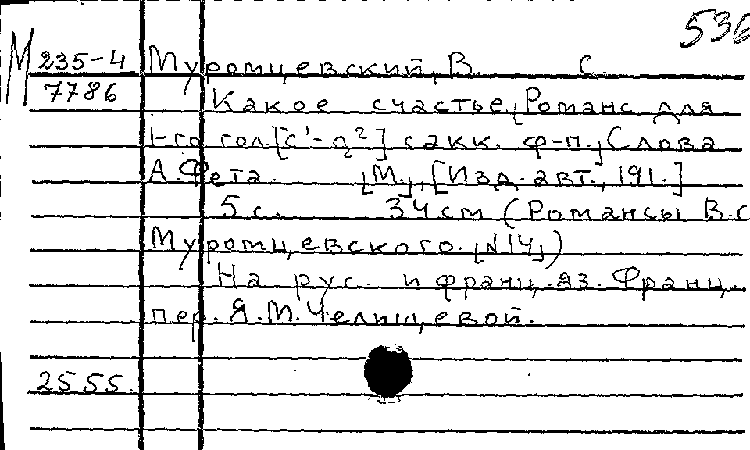 536
М 235-4 Муромцевский, В. С
7786 Какое счастье. [Романс для
1-го гол. [c¹-g²] с акк. ф-п.] Слова
А. Фета. [М.], [Изд. авт., 191.]
5 с. 34 см (Романсы В. С
Муромцевского. [N 14])
На рус. и франц. яз. Франц.
пер. Я. М. Челищевой.
2555.